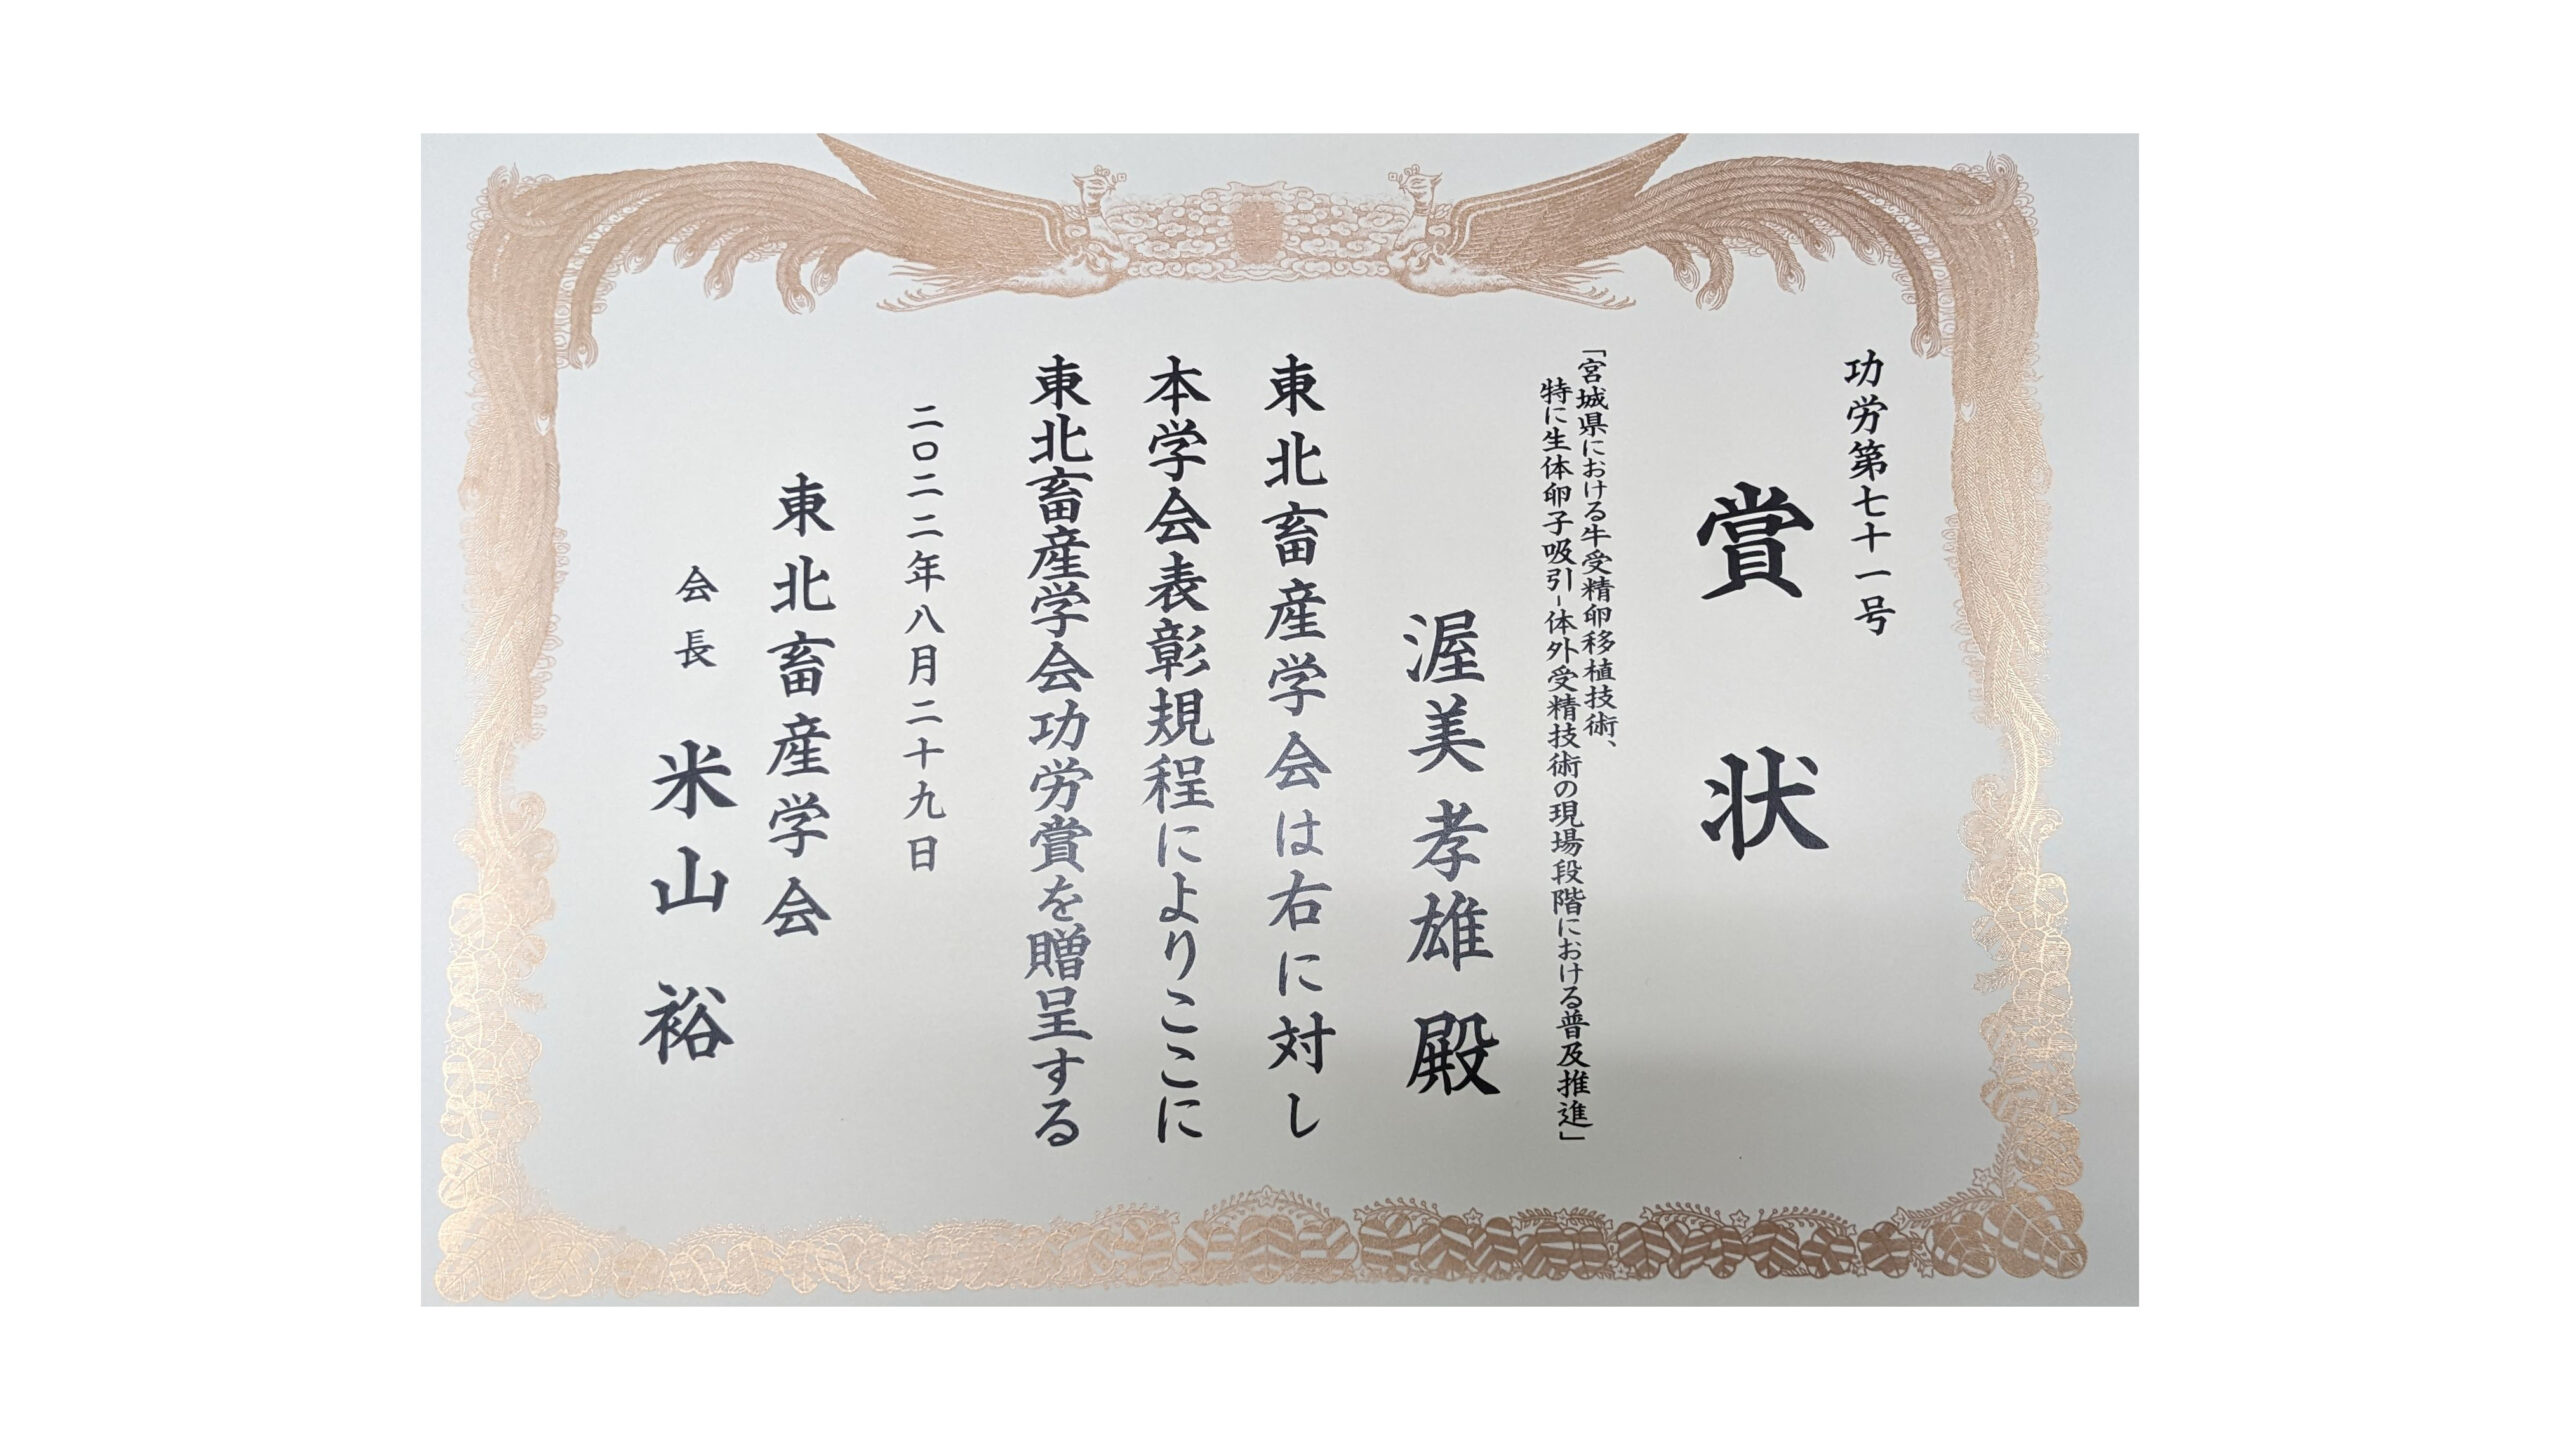 功労第七十一号
賞状
「宮城県における牛受精卵移植技術、
特に生体卵子吸引-体外受精技術の現場段階における普及推進」
渥美孝雄殿
東北畜産学会は右に対し
本学会表彰規程によりここに
東北畜産学会功労賞を贈呈する
二〇二二年八月二十九日
東北畜産学会
会長 米山裕